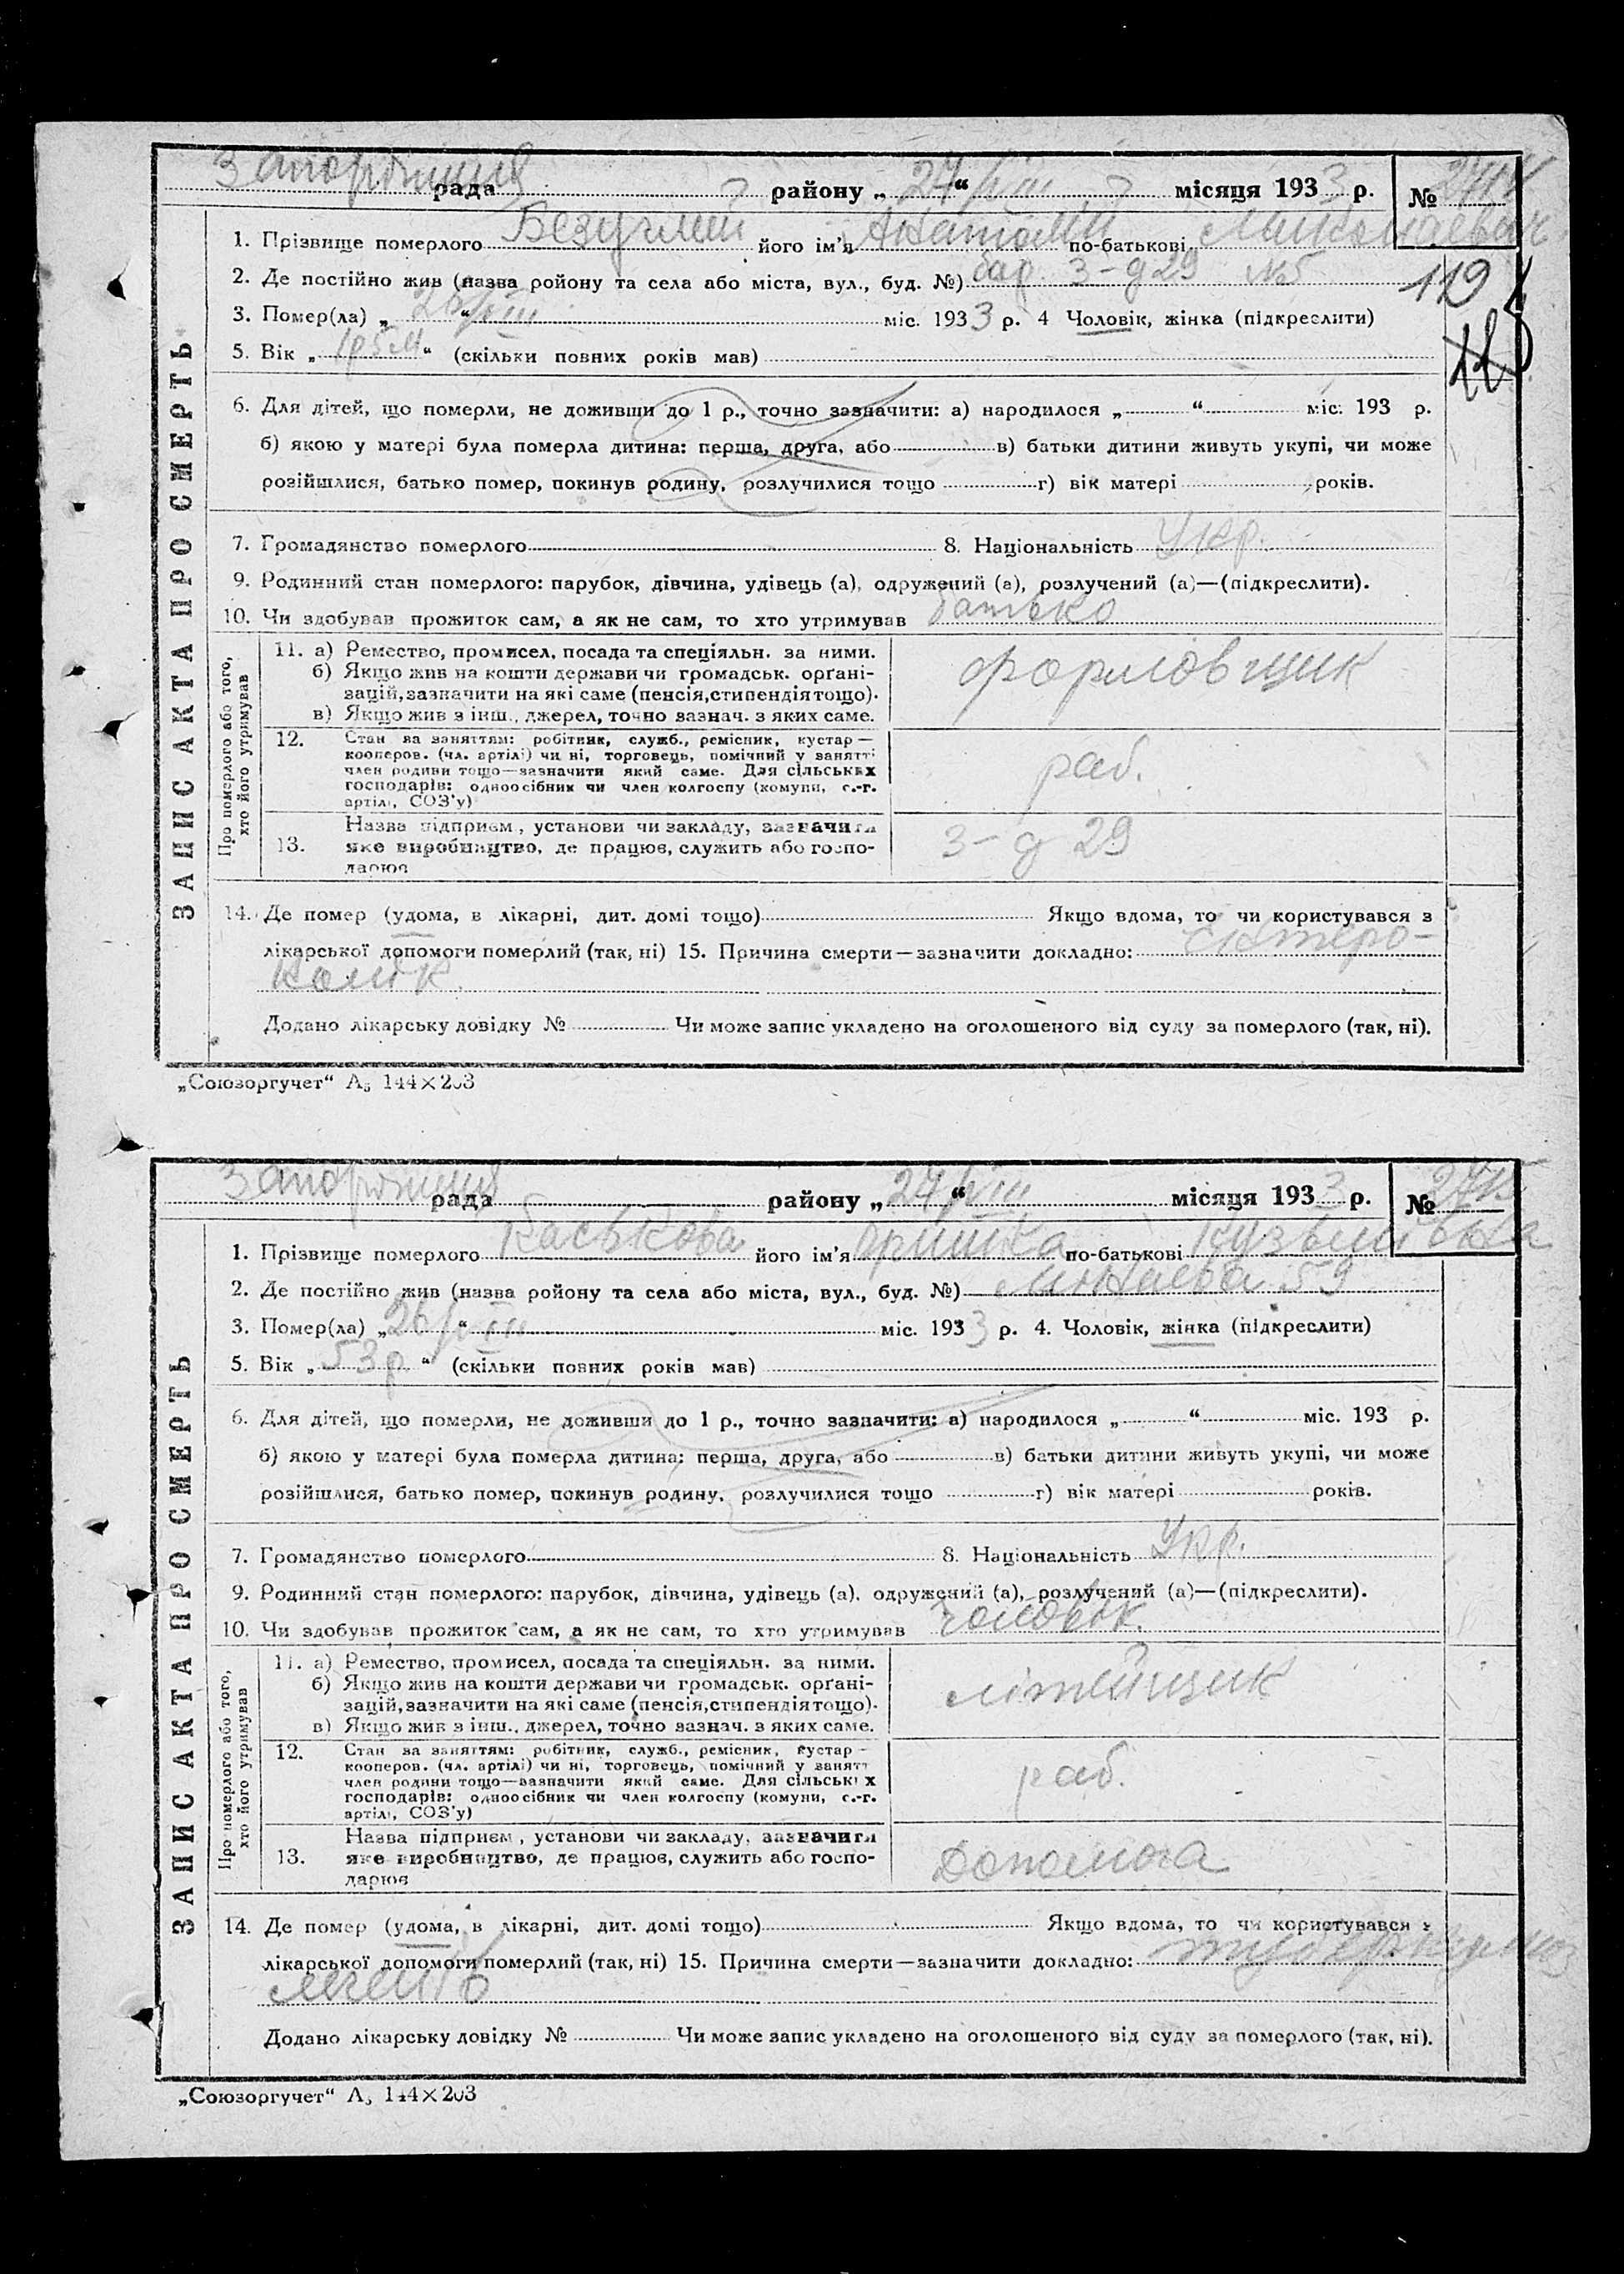 рада району „ 27/VIII “ місяця 1933 р. №
1. Прізвище померлого Безуглий його ім’я Анатолій по-батькові Миколаевич
2. Де постійно жив (назва ройону та села або міста, вул., буд. №) бар. З-д 29 №5
119
3. Помер(ла) „ 26/VIII “ міс. 1933 р. 4 Чоловік, жінка (підкреслити)
5. Вік „ 1р5м “ (скільки повних років мав)
6. Для дітей, що померли, не доживши до 1 р., точно зазначити: а) народилося „ “ міс. 193 р.
б) якою у матері була померла дитина: перша, друга, або в) батьки дитини живуть укупі, чи може
розійшлися, батько помер, покинув родину, розлучилися тощо г) вік матері років.
7. Громадянство померлого 8. Національність Укр.
9. Родинний стан померлого: парубок, дівчина, удівець (а), одружений (а), розлучений (а)—(підкреслити).
10. Чи здобував прожиток сам, а як не сам, то хто утримував батько
ЗАПИС АКТА ПРО СМЕРТЬ
Про померлого або того,
хто його утримував
11. а) Ремество, промисел, посада та спеціяльн. за ними.
б) Якщо жив на кошти держави чи громадськ. орґані-
зацій, зазначити на які саме (пенсія, стипендія тощо).
в) Якщо жив з інш., джерел, точно зазнач. з яких саме.
формовщик
12. Стан за заняттям: робітник, служб., ремісник, кустар—
кооперов. (чл. артілі) чи ні, торговець, помічний у занятті
член родини тощо—зазначити який саме. Для сільських
господарів: одноосібник чи член колгоспу (комуни, с.-г.
артілі, СОЗ’у)
раб.
13. Назва підприєм., установи чи закладу, зазначити
яке виробництво, де працює, служить або госпо-
дарює
З-д 29
14. Де помер (удома, в лікарні, дит. домі тощо) Якщо вдома, то чи користувався з
лікарської допомоги померлий (так, ні) 15. Причина смерти—зазначити докладно: ентеро-
колік.
Додано лікарську довідку № Чи може запис укладено на оголошеного від суду за померлого (так, ні).
„Союзоргучет“ А₅ 144×203
рада району „ 27/VIII “ місяця 1933 р. №
1. Прізвище померлого Каськова його ім’я Оришка по-батькові Кузьмивна
2. Де постійно жив (назва ройону та села або міста, вул., буд. №) Минаева 59
3. Помер(ла) „ 26/VIII “ міс. 1933 р. 4. Чоловік, жінка (підкреслити)
5. Вік „ 53р “ (скільки повних років мав)
6. Для дітей, що померли, не доживши до 1 р., точно зазначити: а) народилося „ “ міс. 193 р.
б) якою у матері була померла дитина: перша, друга, або в) батьки дитини живуть укупі, чи може
розійшлися, батько помер, покинув родину, розлучилися тощо г) вік матері років.
7. Громадянство померлого 8. Національність Укр.
9. Родинний стан померлого: парубок, дівчина, удівець (а), одружений (а), розлучений (а)—(підкреслити).
10. Чи здобував прожиток сам, а як не сам, то хто утримував чоловік.
ЗАПИС АКТА ПРО СМЕРТЬ
Про померлого або того,
хто його утримував
11. а) Ремество, промисел, посада та спеціяльн. за ними.
б) Якщо жив на кошти держави чи громадськ. орґані-
зацій, зазначити на які саме (пенсія, стипендія тощо).
в) Якщо жив з інш., джерел, точно зазнач. з яких саме.
літейщик
12. Стан за заняттям: робітник, служб., ремісник, кустар—
кооперов. (чл. артілі) чи ні, торговець, помічний у занятт
член родини тощо—зазначити який саме. Для сільських
господарів: одноосібник чи член колгоспу (комуни, с.-г.
артілі, СОЗ’у)
раб.
13. Назва підприєм., установи чи закладу, зазначити
яке виробництво, де працює, служить або госпо-
дарює
Допомога
14. Де помер (удома, в лікарні, дит. домі тощо) Якщо вдома, то чи користувався з
лікарської допомоги померлий (так, ні) 15. Причина смерти—зазначити докладно: туберкульоз
легенів
Додано лікарську довідку № Чи може запис укладено на оголошеного від суду за померлого (так, ні).
„Союзоргучет“ А₅ 144×203